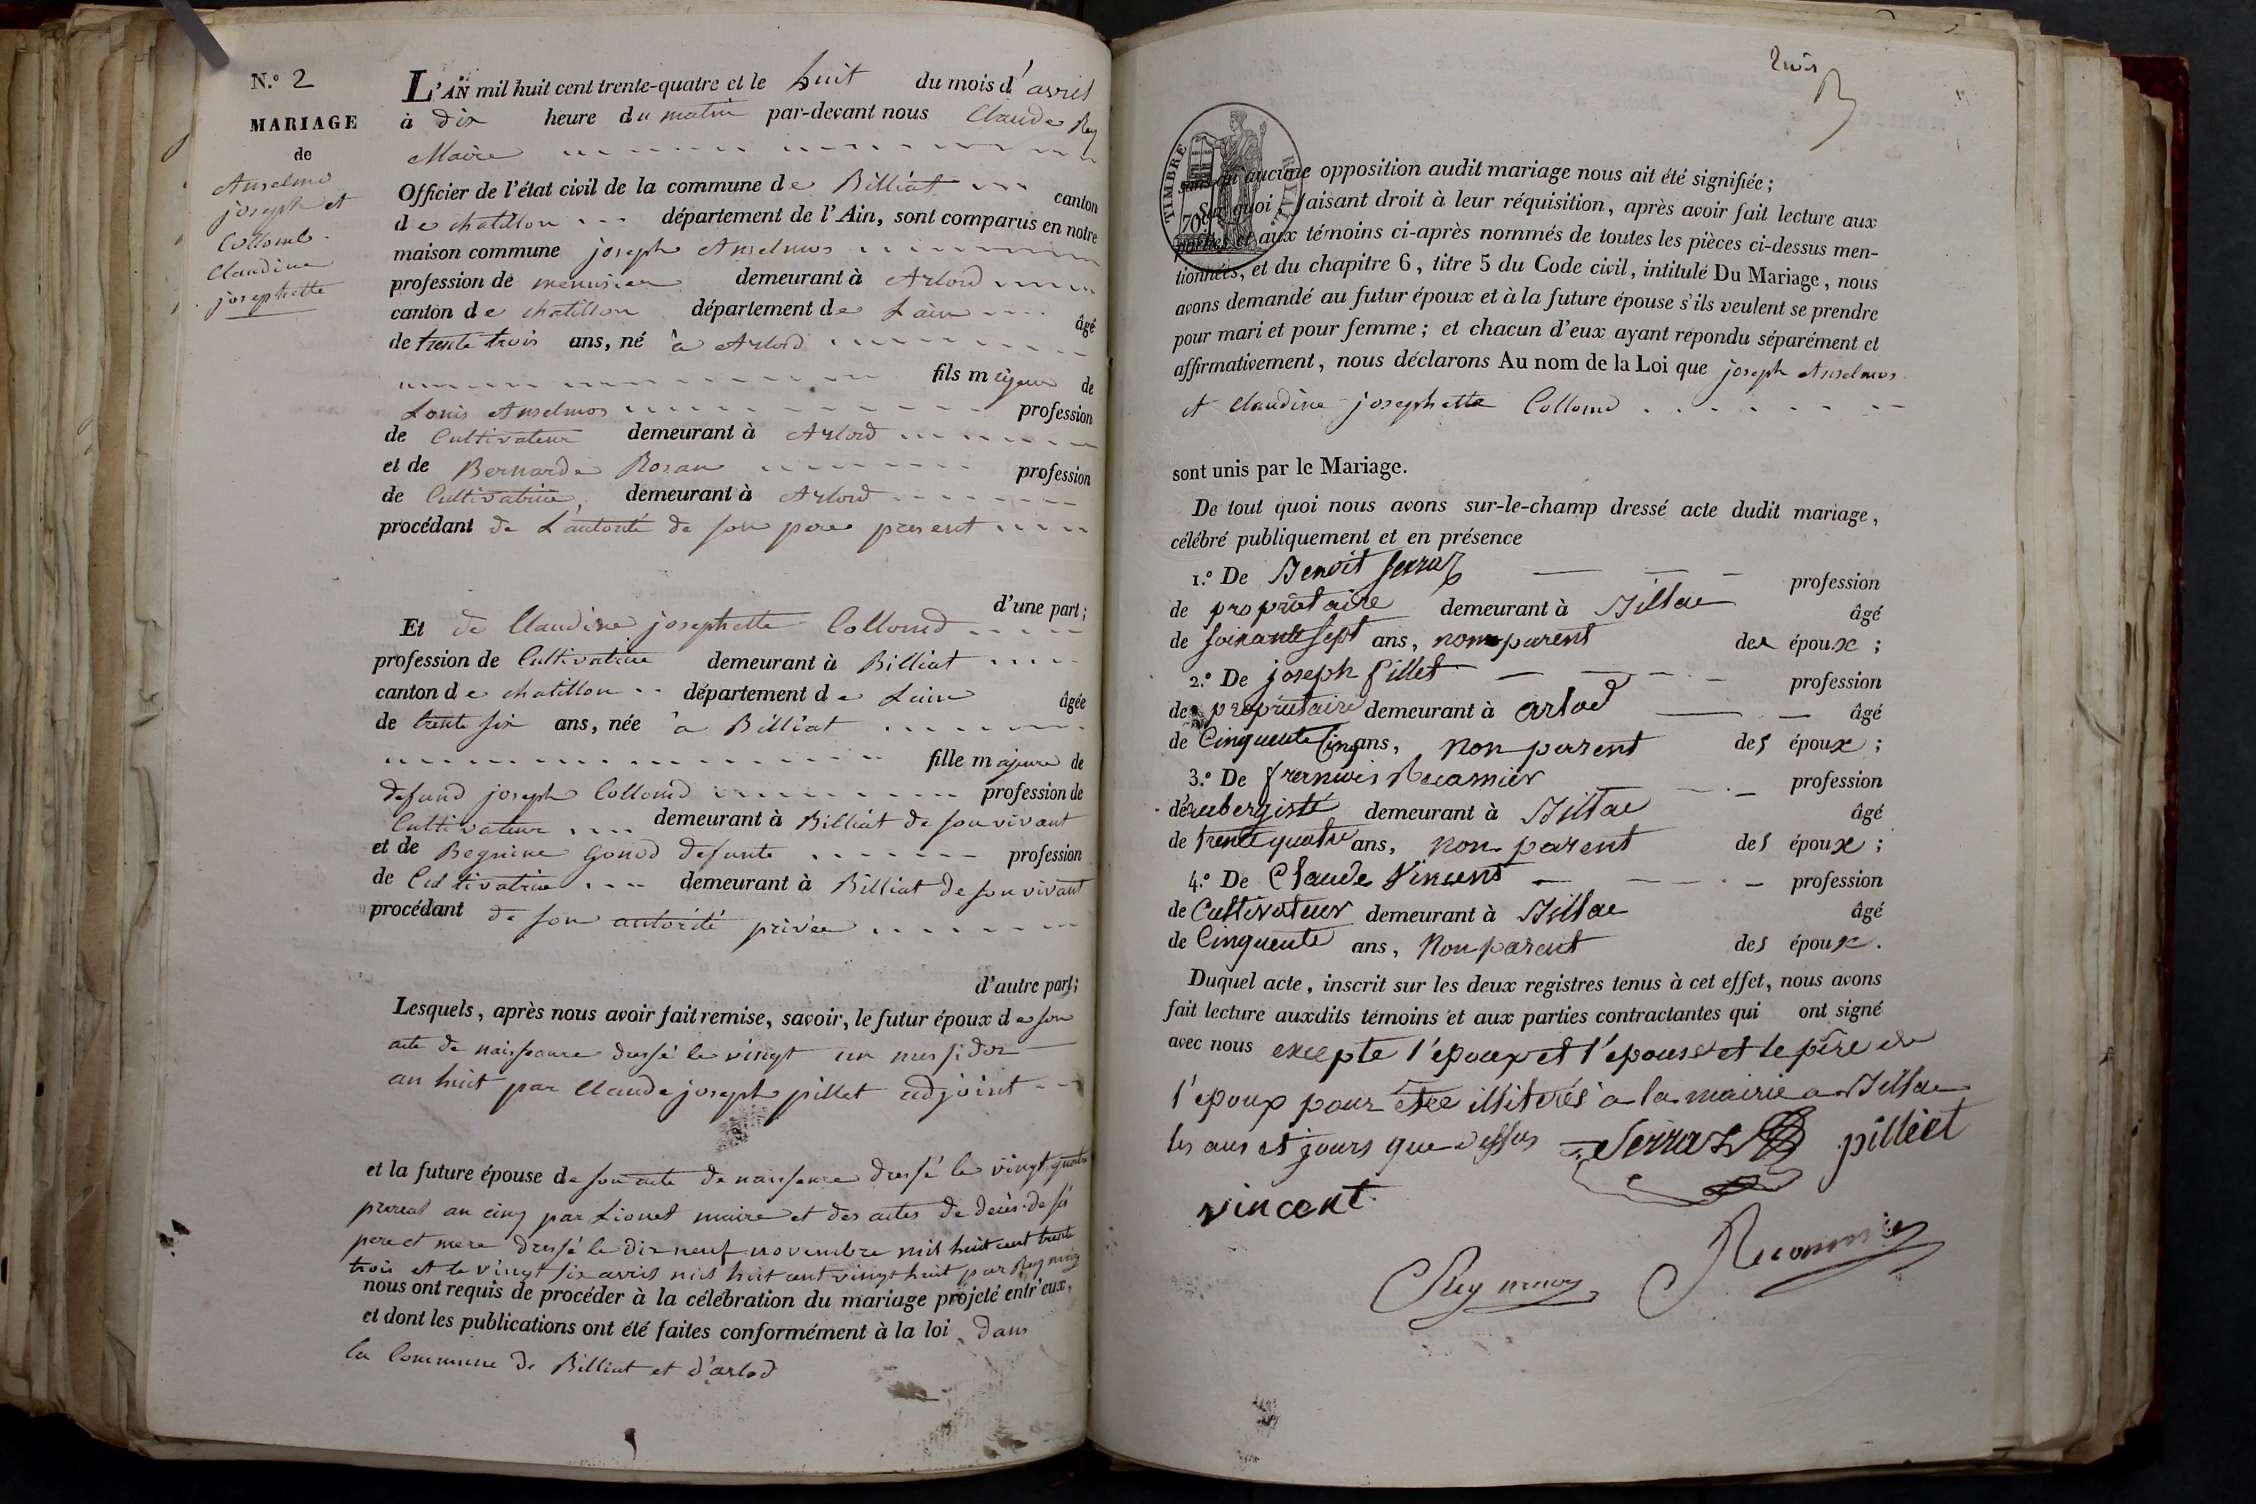 N.º 2
MARIAGE
de
Anselme
joseph et
Collomb
Claudine
josephette
L'AN mil huit cent trente-quatre et le huit du mois d'avril
à dix heure du matin par-devant nous Claude Rey
Maire
Officier de l'état civil de la commune de Billiat canton
de chatillon département de l'Ain, sont comparus en notre
maison commune joseph Anselmos
profession de menusier demeurant à Arlod
canton de chatillon département de Lain âgé
de trente trois ans, né à Arlod
fils majeur de
Louis Anselmos profession
de Cultivateur demeurant à Arlod
et de Bernarde Rosan profession
de Cultivatrice demeurant à Arlod
procédant de L'autorité de son pere present
d'une part;
Et de Claudine josephette Collomd
profession de Cultivatrice demeurant à Billiat
canton de chatillon département de Lain âgée
de trente six ans, née à Billiat
fille majeure de
defund joseph Collomd profession de
Cultivateur demeurant à Billiat de son vivant
et de Begnine Gonod defunte profession
de Cultivatrice demeurant à Billiat de son vivant
procédant de son autorité privée
d'autre part;
Lesquels, après nous avoir fait remise, savoir, le futur époux de son
acte de naissance dressé le vingt un messidor
an huit par Claude joseph pillet adjoint
et la future épouse de son acte de naissance dressé le vingt quatre
prereal an cinq par Lionet maire et des actes de decès de ses
pere et mere dressé le dix neuf novembre mil huit cent trente
trois et le vingt six avril mil huit cent vingt huit par Rey maire
nous ont requis de procéder à la célébration du mariage projeté entr'eux,
et dont les publications ont été faites conformément à la loi dans
la Commune de Billiat et d'arlod
trois
TIMBRE ROYAL
70
sans qu'aucune opposition audit mariage nous ait été signifiée;
Sur quoi, faisant droit à leur réquisition, après avoir fait lecture aux
parties et aux témoins ci-après nommés de toutes les pièces ci-dessus men-
tionnées, et du chapitre 6, titre 5 du Code civil, intitulé Du Mariage, nous
avons demandé au futur époux et à la future épouse s'ils veulent se prendre
pour mari et pour femme; et chacun d'eux ayant répondu séparément et
affirmativement, nous déclarons Au nom de la Loi que joseph Anselmos
et Claudine josephette Collomd
sont unis par le Mariage.
De tout quoi nous avons sur-le-champ dressé acte dudit mariage,
célébré publiquement et en présence
1.º De Benoit Serraz profession
de propriétaire demeurant à Billiat âgé
de soixante sept ans, non parent des époux;
2.º De joseph pillet profession
de propriétaire demeurant à arlod âgé
de Cinquente Cinq ans, non parent des époux;
3.º De francois Recamier profession
d'eubergiste demeurant à Billiat âgé
de trente quatre ans, non parent des époux;
4.º De Claude Vincent profession
de Cultivateur demeurant à Billiat âgé
de Cinquente ans, Non parent des époux.
Duquel acte, inscrit sur les deux registres tenus à cet effet, nous avons
fait lecture auxdits témoins et aux parties contractantes qui ont signé
avec nous excepte l'epoux et l'epouse et le père de
l'epoux pour être illiterés a la mairie a Billiat
les ans et jours que dessus Serraz pilleet
vincent
Rey maire Recamier